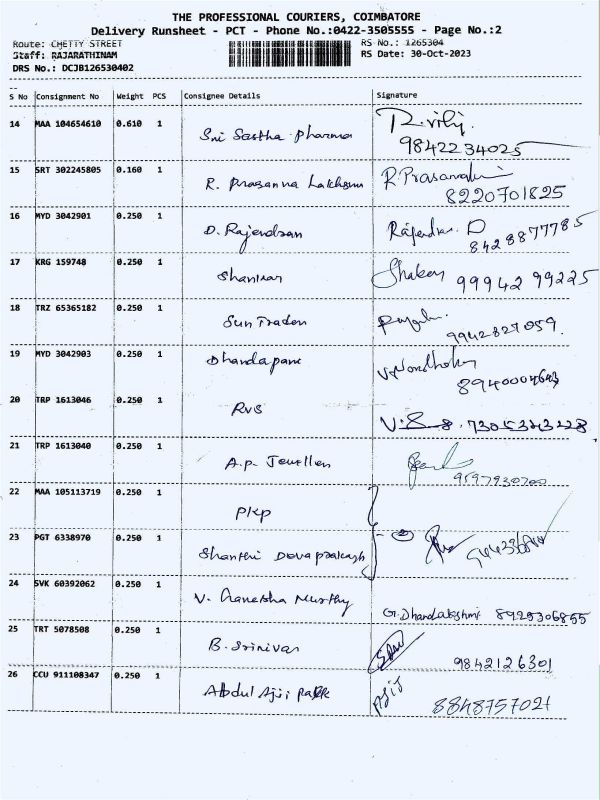 THE PROFESSIONAL COURIERS, COIMBATORE
Delivery Runsheet - PCT - Phone No.:0422-3505555 - Page No.:2
Route: CHETTY STREET RS No.: 1265304
Staff: RAJARATHINAM RS Date: 30-Oct-2023
DRS No.: DCJB126530402
S No Consignment No Weight PCS Consignee Details Signature
14 MAA 104654610 0.610 1 Sri Sastha Pharma 98422 34025
15 SRT 302245805 0.160 1 R. Prasanna Lakshmi R Prasanna 8220701825
16 MYD 3042901 0.250 1 D. Rajendran Rajendran. D 8428877785
17 KRG 159748 0.250 1 Shankar 99942 99225
18 TRZ 65365182 0.250 1 Sun Traders 9942827059.
19 MYD 3042903 0.250 1 Dhandapani 8940004643
20 TRP 1613046 0.250 1 RVS 7305343228
21 TRP 1613040 0.250 1 A.P. Jewellers 9597930700
22 MAA 105113719 0.250 1 PKP
23 PGT 6338970 0.250 1 Shanthi Devaprakash
24 SVK 60392062 0.250 1 V. Ganesha Murthy G. Dhandalakshmi 8925306855
25 TRT 5078508 0.250 1 B. Srinivas 9842126301
26 CCU 911108347 0.250 1 Abdul Ajij AJIJ 8848757021